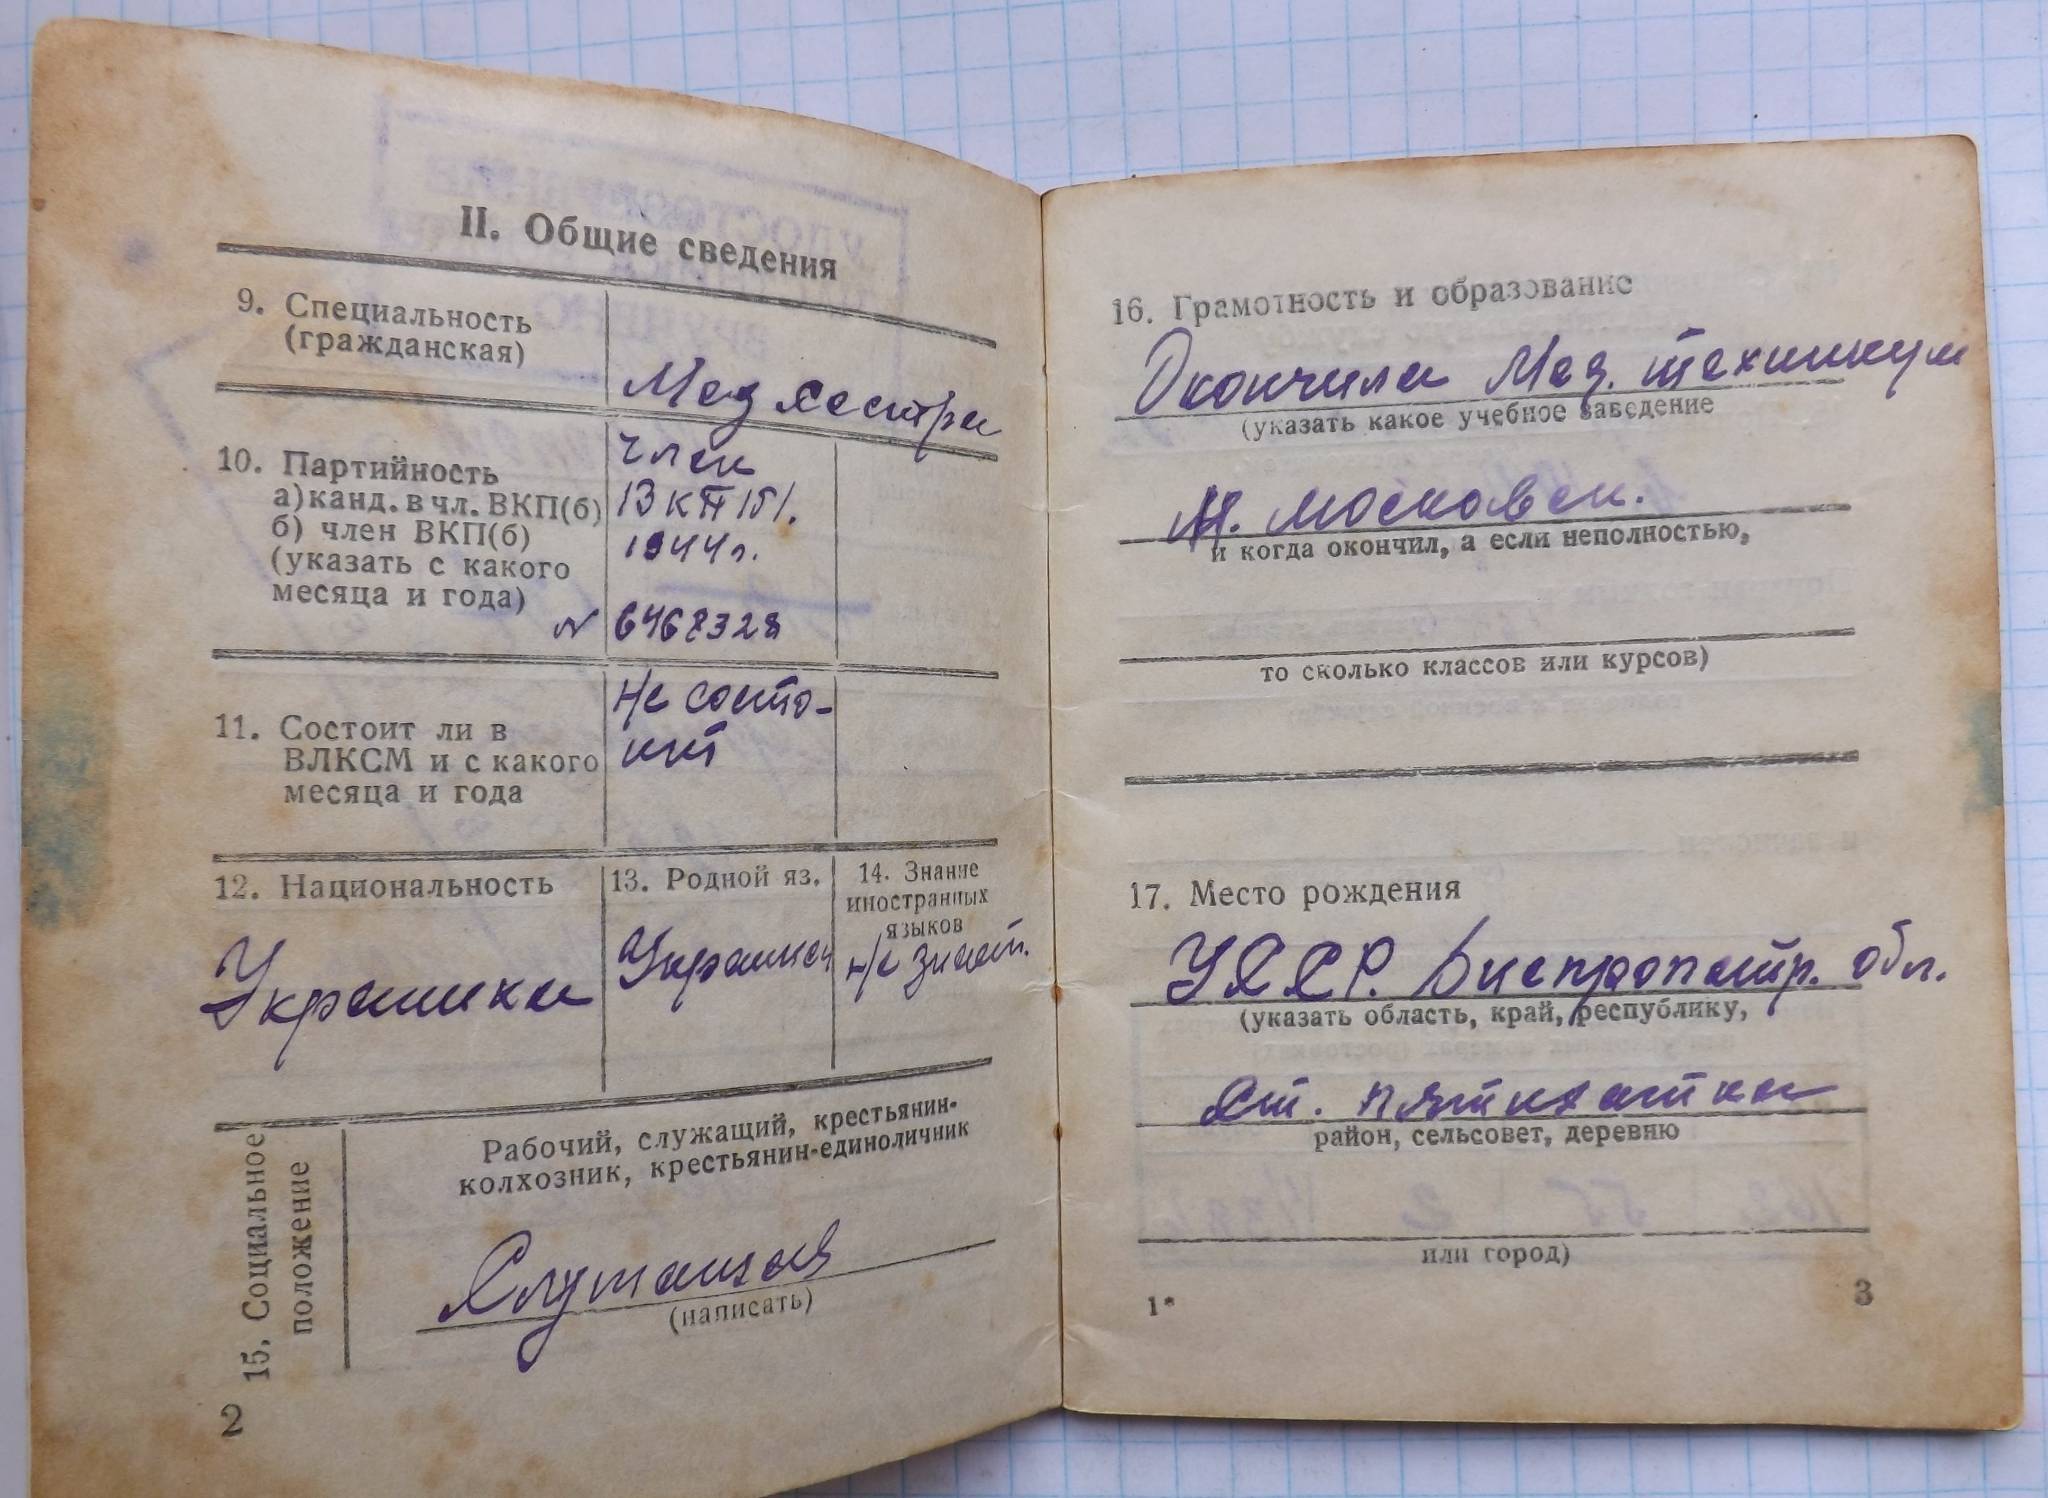 II. Общие сведения
9. Специальность
(гражданская)
Мед сестра
10. Партийность
а) канд. в чл. ВКП(б)
б) член ВКП(б)
(указать с какого
месяца и года)
член
1944 г.
N 6468328
11. Состоит ли в
ВЛКСМ и с какого
месяца и года
Не состо-
ит
12. Национальность
Украинка
13. Родной яз.
14. Знание
иностранных
языков
Не знает.
15. Социальное
положение
Рабочий, служащий, крестьянин-
колхозник, крестьянин-единоличник
Служащая
(написать)
2
16. Грамотность и образование
Окончила Мед. техникум
(указать какое учебное заведение
Н. Московск.
и когда окончил, а если неполностью,
то сколько классов или курсов)
17. Место рождения
УССР. Днепропетр. обл.
(указать область, край, республику,
ст. Пятихатки
район, сельсовет, деревню
или город)
1*
3